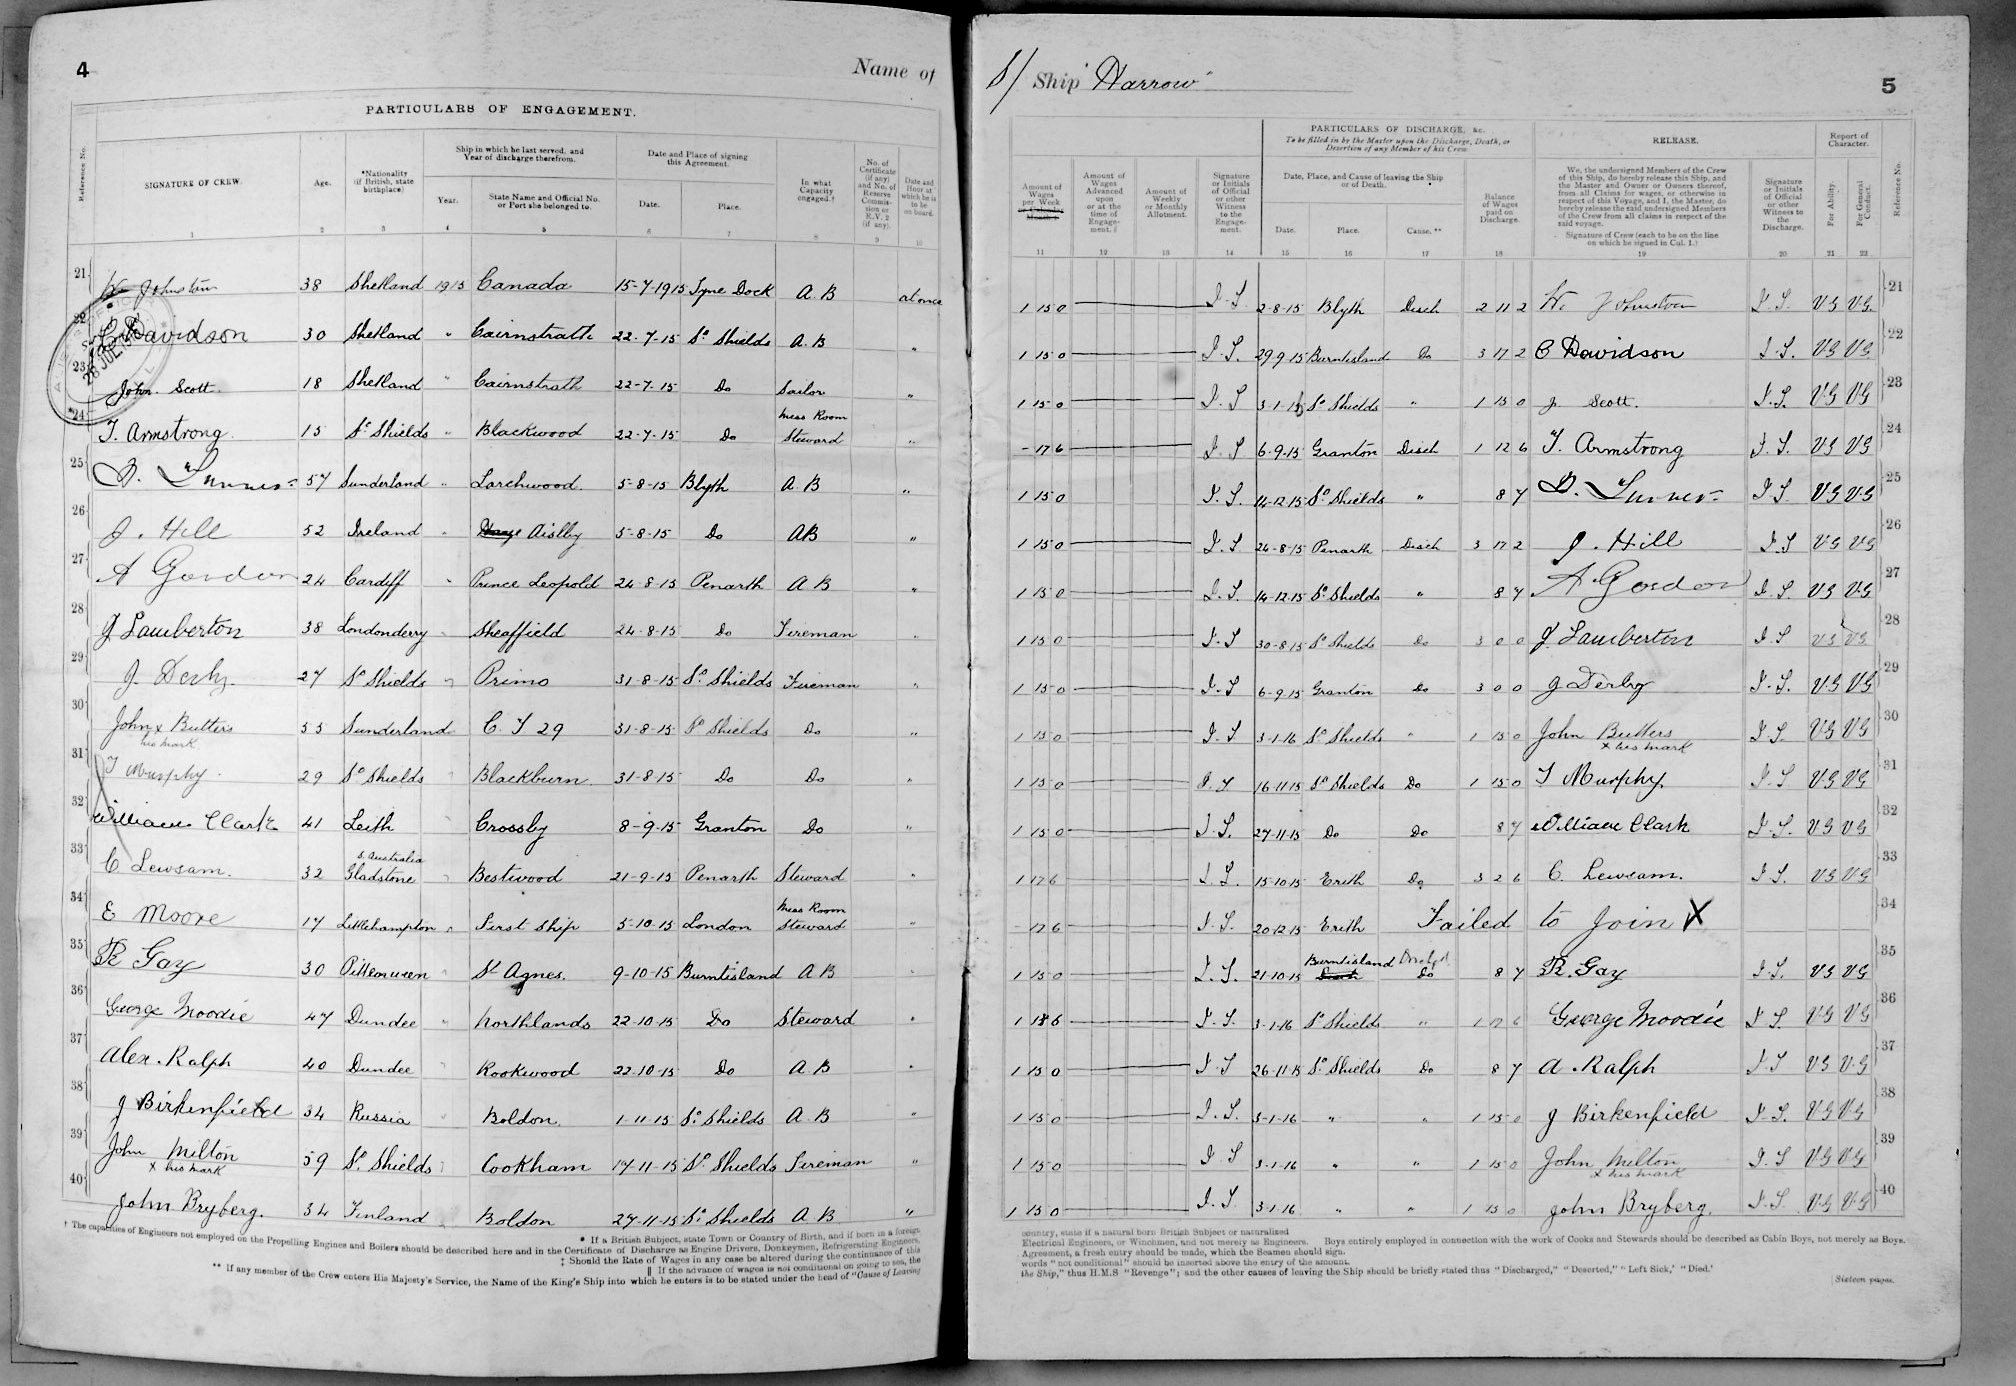 4
Name of
PARTICULARS OF ENGAGEMENT.
Reference No.
SIGNATURE OF CREW.
Age.
*Nationality (if British, state birthplace)
Ship in which he last served, and Year of discharge therefrom.
Year.
State Name and Official No. or Port she belonged to.
Date and Place of signing this Agreement.
Date.
Place.
In what Capacity engaged.†
No. of Certificate (if any) and No. of Reserve Commission or R.V. 2 (if any).
Date and Hour at which he is to be on board.
1 2 3 4 5 6 7 8 9 10
21 W Johnston 38 Shetland 1915 Canada 15-7-1915 Tyne Dock A.B at once
22 C Davidson 30 Shetland " Cairnstrath 22-7-15 So Shields A.B "
23 John Scott 18 Shetland " Cairnstrath 22-7-15 Do Sailor "
24 T. Armstrong 15 So Shields " Blackwood 22-7-15 Do Mess Room Steward "
25 57 Sunderland " Larchwood 5-8-15 Blyth A.B "
26 J. Hill 52 Ireland " Aislby 5-8-15 Do AB "
27 A Gordon 24 Cardiff " Prince Leopold 24-8-15 Penarth A B "
28 J Lamberton 38 Londonderry " Sheaffield 24-8-15 Do Fireman "
29 J. Derby 27 So Shields " Primo 31-8-15 So Shields Fireman "
30 John x Butters his mark 55 Sunderland " C. T 29 31-8-15 So Shields Do "
31 T Murphy 29 So Shields " Blackburn 31-8-15 Do Do "
32 William Clark 41 Leith Crossby 8-9-15 Granton Do "
33 C Lewsam. 32 S. Australia Gladstone " Bestwood 21-9-15 Penarth Steward "
34 E Moore 17 Littlehampton " First Ship 5-10-15 London Mess Room Steward "
35 R Gay 30 Pittenween St Agnes. 9-10-15 Burntisland A B "
36 George Moodie 47 Dundee " Northlands 22-10-15 Do Steward "
37 Alex. Ralph 40 Dundee " Rookwood 22-10-15 Do A B "
38 J Birkenfield 34 Russia " Boldon 1-11-15 So Shields A.B "
39 John Milton x his mark 59 So Shields " Cookham 17-11-15 So Shields Fireman "
40 John Bryberg. 34 Finland " Boldon 27-11-15 So Shields A B "
* If a British Subject, state Town or Country of Birth, and if born in a foreign
† The capacities of Engineers not employed on the Propelling Engines and Boilers should be described here and in the Certificate of Discharge as Engine Drivers, Donkeymen, Refrigerating Engineers,
‡ Should the Rate of Wages in any case be altered during the continuance of this
|| If the advance of wages is not conditional on going to sea, the
** If any member of the Crew enters His Majesty's Service, the Name of the King's Ship into which he enters is to be stated under the head of "Cause of Leaving
S/ Ship "Harrow"
5
PARTICULARS OF DISCHARGE, &c.
To be filled in by the Master upon the Discharge, Death, or Desertion of any Member of his Crew
RELEASE.
Report of Character.
Amount of Wages per Week or Calendar Month.
Amount of Wages Advanced upon or at the time of Engagement.||
Amount of Weekly or Monthly Allotment.
Signature or Initials of Official or other Witness to the Engagement.
Date, Place, and Cause of leaving the Ship or of Death.
Date.
Place.
Cause.**
Balance of Wages paid on Discharge.
We, the undersigned Members of the Crew of this Ship, do hereby release this Ship, and the Master and Owner or Owners thereof, from all Claims for wages, or otherwise in respect of this Voyage, and I, the Master, do hereby release the said undersigned Members of the Crew from all claims in respect of the said voyage.
Signature of Crew (each to be on the line on which he signed in Col. 1.)
Signature or Initials of Official or other Witness to the Discharge.
For Ability.
For General Conduct.
Reference No.
11 12 13 14 15 16 17 18 19 20 21 22
1 15 0 2-8-15 Blyth Disch 2 11 2 W. Johnston V G V G. 21
1 15 0 29-9-15 Burntisland Do 3 17 2 C Davidson V G V G 22
1 15 0 3-1-16 So Shields " 1 15 0 J Scott. V G V G 23
- 17 6 6-9-15 Granton Disch 1 12 6 T. Armstrong V G V G 24
1 15 0 14-12-15 So Shields " 8 7 V G V G 25
1 15 0 24-8-15 Penarth Disch 3 17 2 J. Hill V G V G 26
1 15 0 14-12-15 So Shields " 8 7 A Gordon V G V G 27
1 15 0 30-8-15 So Shields Do 3 0 0 J Lamberton V G V G 28
1 15 0 6-9-15 Granton Do 3 0 0 J Derby V G V G 29
1 15 0 3-1-16 So Shields " 1 15 0 John Butters x his mark V G V G 30
1 15 0 16-11-15 So Shields Do 1 15 0 T Murphy V G V G 31
1 15 0 27-11-15 Do Do 8 7 William Clark V G V G 32
1 17 6 15-10-15 Erith Do 3 2 6 C. Lewsam. V G V G 33
- 17 6 20-12-15 Erith Failed to Join X 34
1 15 0 21-10-15 Burntisland Do 8 7 R. Gay V G V G 35
1 18 6 3-1-16 So Shields " 1 George Moodie V G V G 36
1 15 0 26-11-15 So Shields Do 8 7 A. Ralph V G V G 37
1 15 0 3-1-16 " " 1 15 0 J Birkenfield V G V G 38
1 15 0 3-1-16 " " 1 15 0 John Milton x his mark V G V G 39
1 15 0 3-1-16 " " 1 15 0 John Bryberg. V G V G 40
country, state if a natural born British Subject or naturalized
Electrical Engineers, or Winchmen, and not merely as Engineers. Boys entirely employed in connection with the work of Cooks and Stewards should be described as Cabin Boys, not merely as Boys.
Agreement, a fresh entry should be made, which the Seamen should sign.
words "not conditional" should be inserted above the entry of the amount.
the Ship," thus H.M.S "Revenge"; and the other causes of leaving the Ship should be briefly stated thus "Discharged," "Deserted," "Left Sick,' "Died.'
[Sixteen pages.